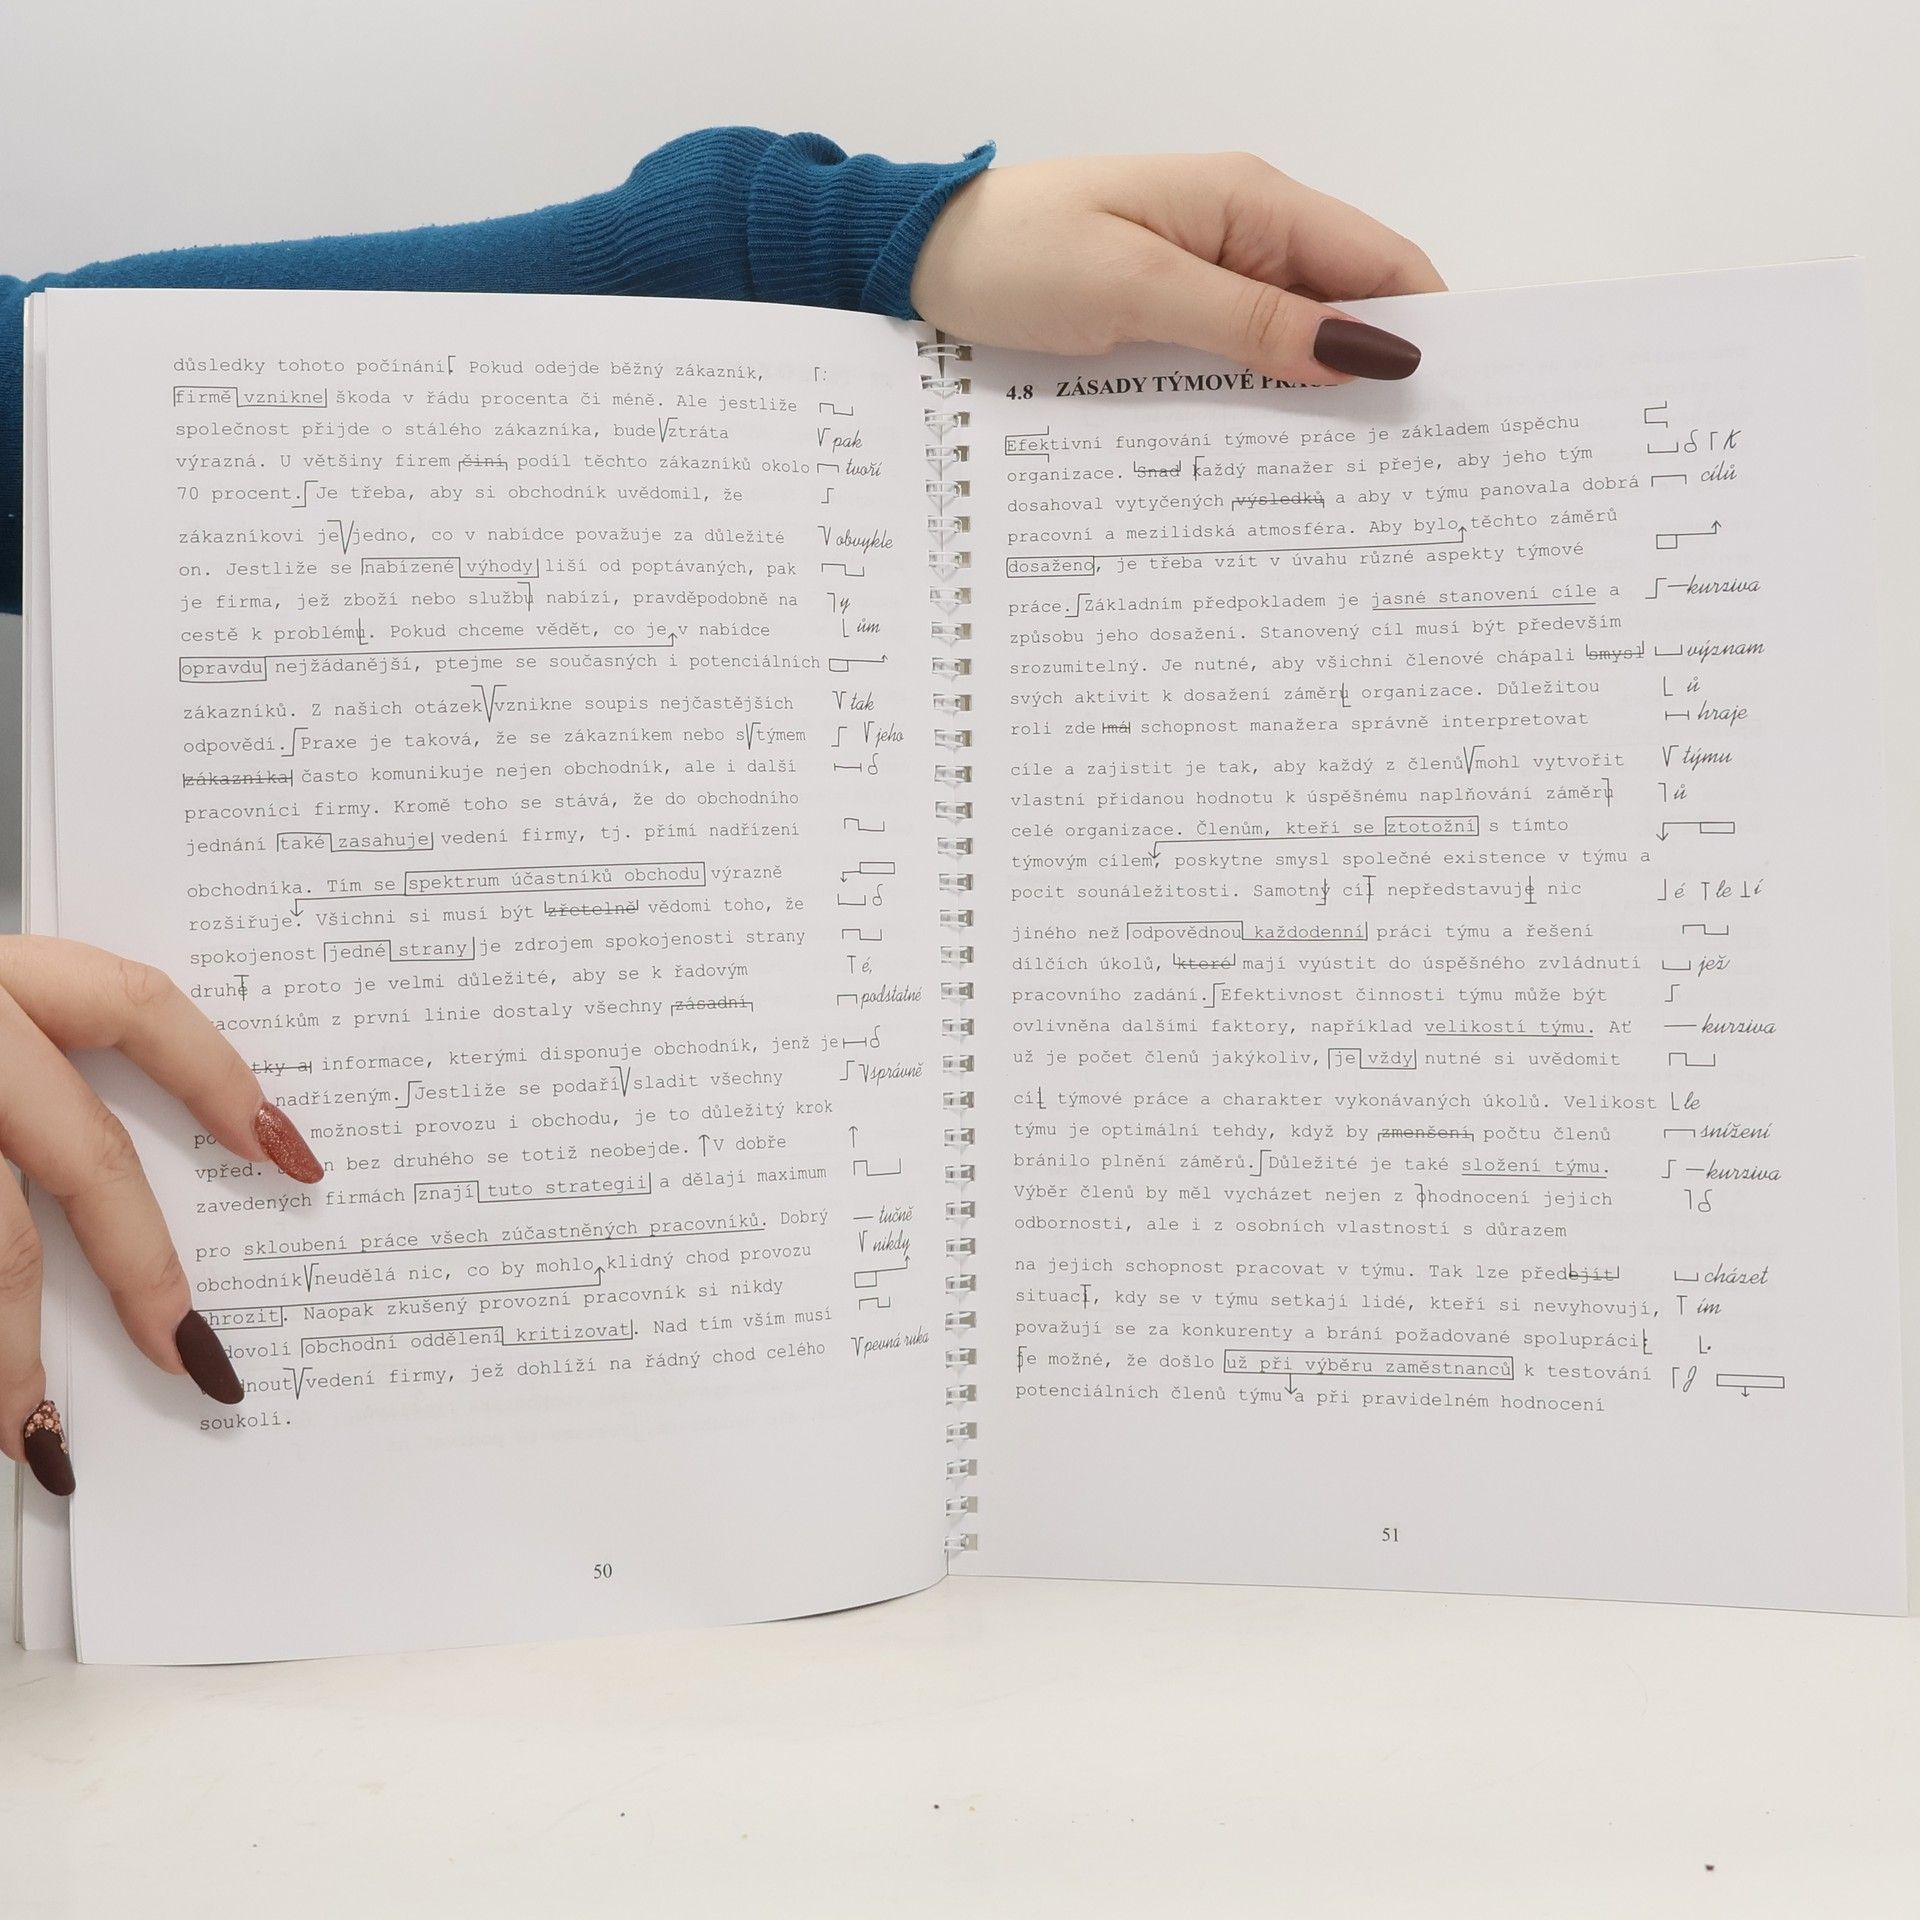 důsledky tohoto počínání. Pokud odejde běžný zákazník, :
firmě vznikne škoda v řádu procenta či méně. Ale jestliže
společnost přijde o stálého zákazníka, bude ztráta pak
výrazná. U většiny firem činí podíl těchto zákazníků okolo tvoří
70 procent. Je třeba, aby si obchodník uvědomil, že
zákazníkovi je jedno, co v nabídce považuje za důležité obvykle
on. Jestliže se nabízené výhody liší od poptávaných, pak
je firma, jež zboží nebo službu nabízí, pravděpodobně na y
cestě k problému. Pokud chceme vědět, co je v nabídce ům
opravdu nejžádanější, ptejme se současných i potenciálních
zákazníků. Z našich otázek vznikne soupis nejčastějších tak
odpovědí. Praxe je taková, že se zákazníkem nebo s týmem jeho
zákazníka často komunikuje nejen obchodník, ale i další
pracovníci firmy. Kromě toho se stává, že do obchodního
jednání také zasahuje vedení firmy, tj. přímí nadřízení
obchodníka. Tím se spektrum účastníků obchodu výrazně
rozšiřuje. Všichni si musí být zřetelně vědomi toho, že
spokojenost jedné strany je zdrojem spokojenosti strany
druhé a proto je velmi důležité, aby se k řadovým é,
acovníkům z první linie dostaly všechny zásadní podstatné
tky a informace, kterými disponuje obchodník, jenž je
nadřízeným. Jestliže se podaří sladit všechny správně
možnosti provozu i obchodu, je to důležitý krok
vpřed. n bez druhého se totiž neobejde. V dobře
zavedených firmách znají tuto strategii a dělají maximum
pro skloubení práce všech zúčastněných pracovníků. Dobrý tučně
obchodník neudělá nic, co by mohlo klidný chod provozu nikdy
ohrozit. Naopak zkušený provozní pracovník si nikdy
dovolí obchodní oddělení kritizovat. Nad tím vším musí
dnout vedení firmy, jež dohlíží na řádný chod celého pevná ruka
soukolí.
50
4.8 ZÁSADY TÝMOVÉ
Efektivní fungování týmové práce je základem úspěchu
organizace. Snad každý manažer si přeje, aby jeho tým K
dosahoval vytyčených výsledků a aby v týmu panovala dobrá cílů
pracovní a mezilidská atmosféra. Aby bylo těchto záměrů
dosaženo, je třeba vzít v úvahu různé aspekty týmové
práce. Základním předpokladem je jasné stanovení cíle a kurziva
způsobu jeho dosažení. Stanovený cíl musí být především
srozumitelný. Je nutné, aby všichni členové chápali smysl význam
svých aktivit k dosažení záměru organizace. Důležitou ů
roli zde má schopnost manažera správně interpretovat hraje
cíle a zajistit je tak, aby každý z členů mohl vytvořit týmu
vlastní přidanou hodnotu k úspěšnému naplňování záměru ů
celé organizace. Členům, kteří se ztotožní s tímto
týmovým cílem, poskytne smysl společné existence v týmu a
pocit sounáležitosti. Samotný cíl nepředstavuje nic é le í
jiného než odpovědnou každodenní práci týmu a řešení
dílčích úkolů, které mají vyústit do úspěšného zvládnutí jež
pracovního zadání. Efektivnost činnosti týmu může být
ovlivněna dalšími faktory, například velikostí týmu. Ať kurziva
už je počet členů jakýkoliv, je vždy nutné si uvědomit
cíl týmové práce a charakter vykonávaných úkolů. Velikost le
týmu je optimální tehdy, když by zmenšení počtu členů snížení
bránilo plnění záměrů. Důležité je také složení týmu. kurziva
Výběr členů by měl vycházet nejen z ohodnocení jejich
odbornosti, ale i z osobních vlastností s důrazem
na jejich schopnost pracovat v týmu. Tak lze předejít cházet
situaci, kdy se v týmu setkají lidé, kteří si nevyhovují, ím
považují se za konkurenty a brání požadované spolupráci .
je možné, že došlo už při výběru zaměstnanců k testování J
potenciálních členů týmu a při pravidelném hodnocení
51